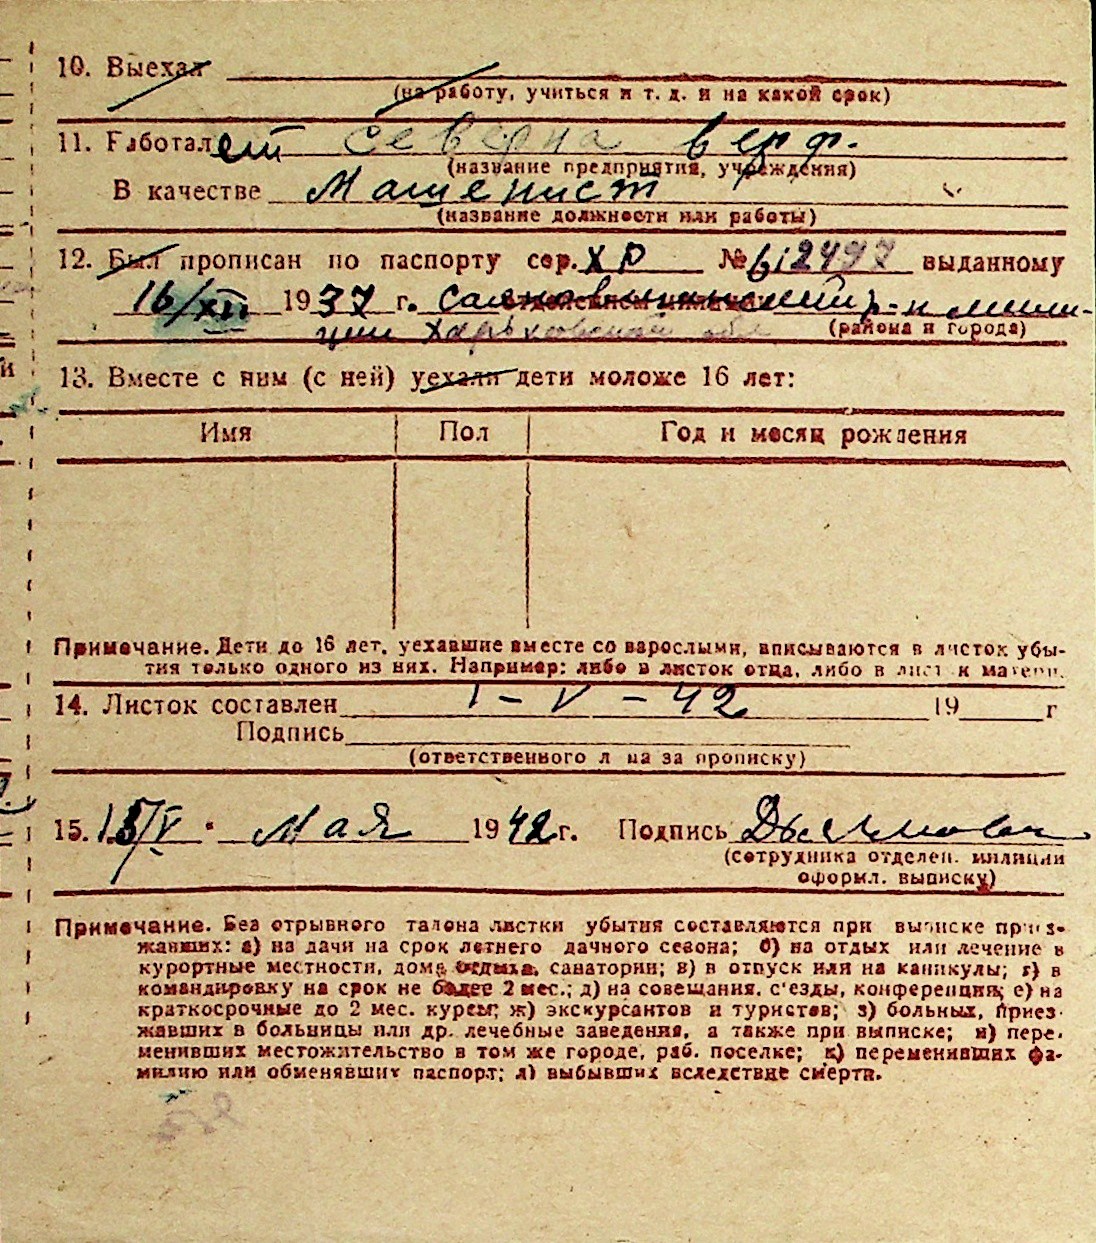 10. Выехал
(на работу, учиться и т. д. и на какой срок)
11. Работает Северна верф.
(название предприятия, учреждения)
В качестве Машенист
(название должности или работы)
12. Был прописан по паспорту сер. ХР № 612497 выданному
16/XII 1937 г. р-н мили-
ции Харьковской обл (района и города)
13. Вместе с ним (с ней) уехали дети моложе 16 лет:
Имя Пол Год и месяц рождения
Примечание. Дети до 16 лет, уехавшие вместе со взрослыми, вписываются в листок убы-
тия только одного из них. Например: либо в листок отца, либо в лист к матери.
14. Листок составлен 1 - V - 42 19 г
Подпись
(ответственного л ца за прописку)
15. 15/V Мая 1942 г. Подпись
(сотрудника отделен. милиции
оформл. выписку)
Примечание. Без отрывного талона листки убытия составляются при выписке приез-
жавших: а) на дачи на срок летнего дачного сезона; б) на отдых или лечение в
курортные местности, дома отдыха, санатории; в) в отпуск или на каникулы; г) в
командировку на срок не более 2 мес.; д) на совещания, с'езды, конференции; е) на
краткосрочные до 2 мес. курсы; ж) экскурсантов и туристов; з) больных, приез-
жавших в больницы или др. лечебные заведения, а также при выписке; и) пере-
менивших местожительство в том же городе, раб. поселке; к) переменивших фа-
милию или обменявших паспорт; л) выбывших вследствие смерти.